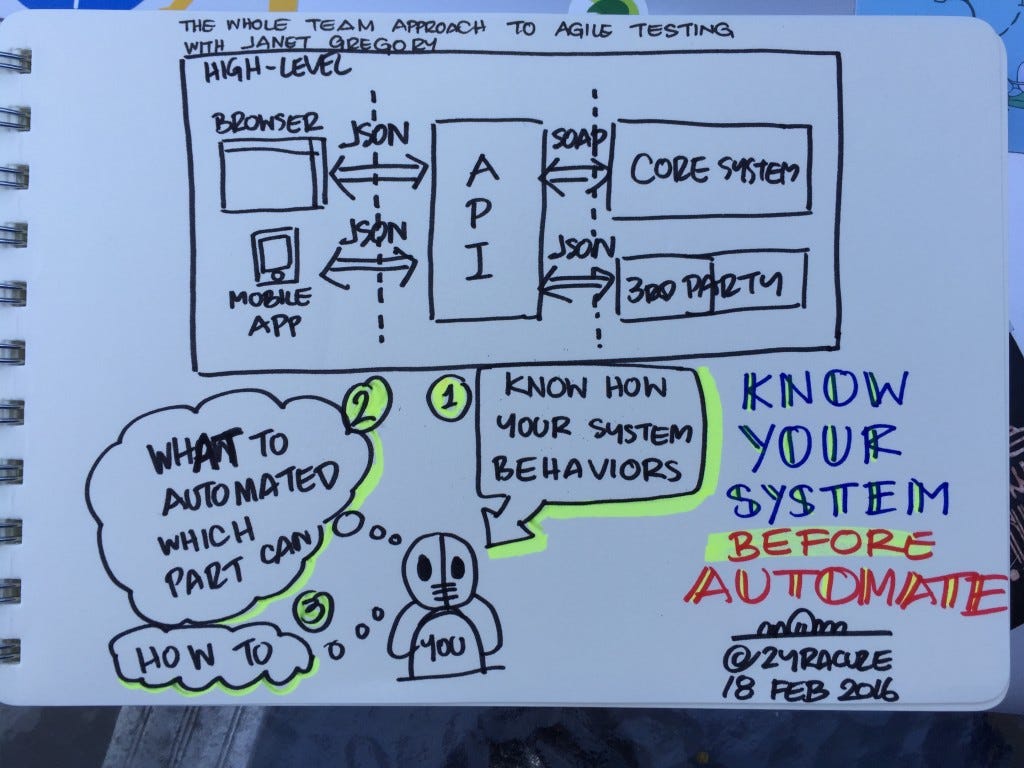 THE WHOLE TEAM APPROACH TO AGILE TESTING
WITH JANET GREGORY
HIGH-LEVEL
BROWSER
JSON
API
SOAP
CORE SYSTEM
MOBILE
APP
JSON
JSON
3RD PARTY
1
KNOW HOW
YOUR SYSTEM
BEHAVIORS
2
WHAT TO
AUTOMATED
WHICH
PART CAN
3
HOW TO
YOU
KNOW
YOUR
SYSTEM
BEFORE
AUTOMATE
18 FEB 2016